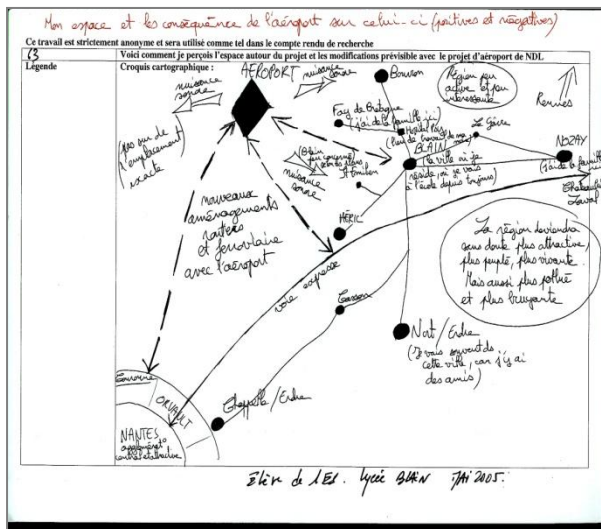 Mon espace et les conséquance de l'aéroport sur celui-ci (positives et négatives)
Ce travail est strictement anonyme et sera utilisé comme tel dans le compte rendu de recherche
Voici comment je perçois l'espace autour du projet et les modifications prévisible avec le projet d'aéroport de NDL
Légende
Croquis cartographique :
AÉROPORT
nuisance sonore
nuisance sonore
(pas sur de l'emplacement exacte)
Bouvron
Région peu
active et peu
intéressante
Rennes
Fay de Bretagne
(j'ai de la famille ici)
(lieu de travail de ma mère)
Le Gâvre
BLAIN
(la ville où je
réside, où je vais
à l'école depuis toujours)
NOZAY
(j'ai de la famille
nuisance
sonore
HÉRIC
Laval
nouveaux
aménagements
routiers
et ferroviaire
avec l'aéroport
voie expresse
La région deviendra
sans doute plus attractive,
plus peuplé, plus vivante.
Mais aussi plus pollué
et plus bruyante
Casson
Nort/Erdre
(Je vais souvent ds
cette ville, car j'y ai
des amis)
Couronne
ORVAULT
Chappelle/Erdre
NANTES
Élève de 1ES. Lycée BLAIN MAI 2005.